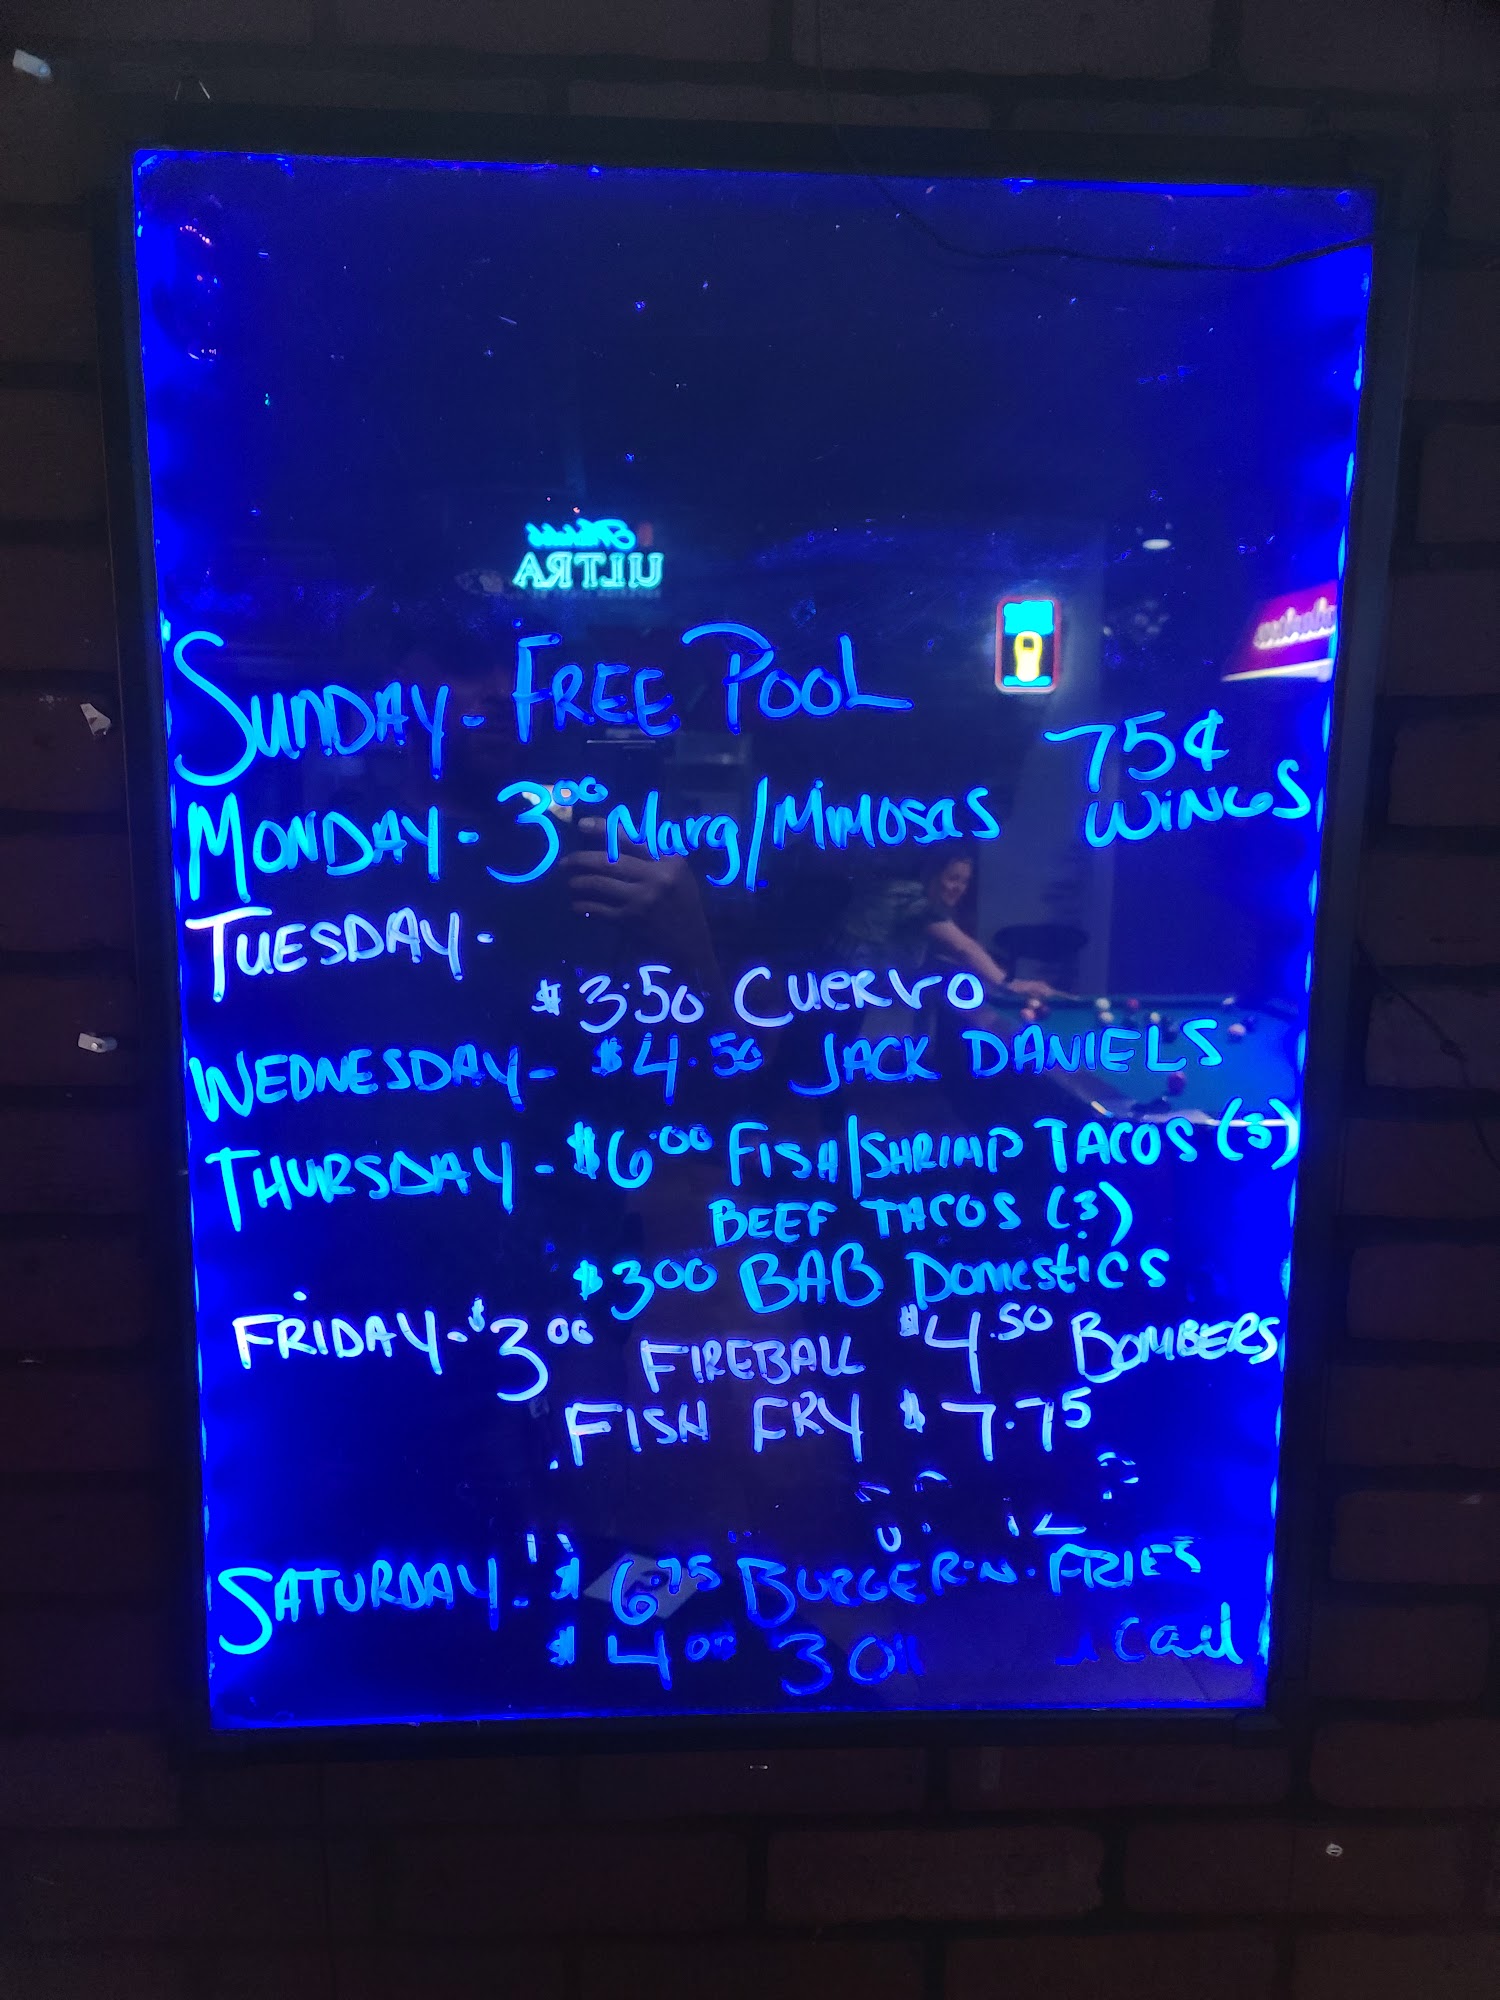 ULTRA
SUNDAY - FREE POOL
MONDAY - 3.00 Marg/MiMOSAS
75¢
WiNGS
TUESDAY -
$3.50 CUERVO
WEDNESDAY - $4.50 JACK DANIELS
THURSDAY - $6.00 FISH/SHRIMP TACOS (3)
BEEF TACOS (3)
$300 BAB DOMEStiCS
FRiDAY - $3.00 FIREBALL $4.50 BOMBERS
FISH FRY $7.75
SATURDAY - $6.75 BURGER-N-FRIES
$4.00 3 Oli